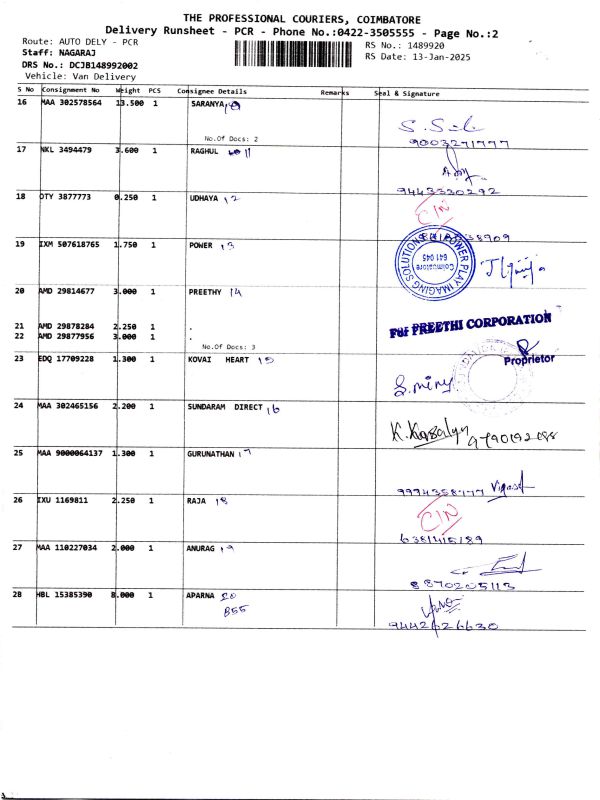 THE PROFESSIONAL COURIERS, COIMBATORE
Delivery Runsheet - PCR - Phone No.:0422-3505555 - Page No.:2
Route: AUTO DELY - PCR
RS No.: 1489920
Staff: NAGARAJ
RS Date: 13-Jan-2025
DRS No.: DCJB148992002
Vehicle: Van Delivery
S No Consignment No Weight PCS Consignee Details Remarks Seal & Signature
16 MAA 302578564 13.500 1 SARANYA 10
No.Of Docs: 2
9003271777
17 NKL 3494479 3.600 1 RAGHUL 11
9443330292
18 OTY 3877773 0.250 1 UDHAYA 12
C/N
19 IXM 507618765 1.750 1 POWER 13
POWER PLAY IMAGING SOLUTIONS
Coimbatore
641 045
20 AMD 29814677 3.000 1 PREETHY 14
21 AMD 29878284 2.250 1 .
22 AMD 29877956 3.000 1 .
No.Of Docs: 3
For PREETHI CORPORATION
Proprietor
23 EDQ 17709228 1.300 1 KOVAI HEART 15
24 MAA 302465156 2.200 1 SUNDARAM DIRECT 16
25 MAA 9000064137 1.300 1 GURUNATHAN 17
26 IXU 1169811 2.250 1 RAJA 18
C/N
27 MAA 110227034 2.000 1 ANURAG 19
8870205113
28 HBL 15385390 8.000 1 APARNA 20
855